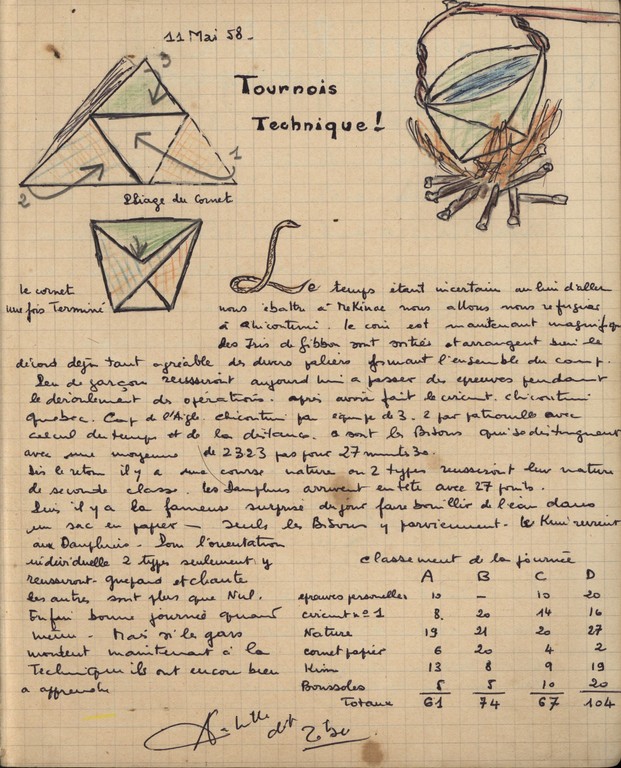 11 Mai 58 -
Tournois
Technique!
3
1
2
Pliage du Cornet
le cornet
une fois Terminé
Le temps étant incertain au lieu d'aller
nous ébattre à Mekinac nous allons nous refugier
à chicoutimi. le coin est maintenant magnifique
des Iris de Gibbon sont sorties et arrangent bien le
décord déjà tant agréable des divers paliers formant l'ensemble du camp.
Peu de garçon reussiront aujourd'hui a passer des epreuves pendant
le déroulement des opérations. après avoir fait le circuit. chicoutimi
Quebec. Cap de l'Aigle. chicoutimi par équipe de 3. 2 par patrouilles avec
calcul du temps et de la distance. ce sont les Bisons qui se distinguent
avec une moyenne de 2323 pas pour 27 minutes 30.
Dès le retour il y a une course nature ou 2 types reussiront leur nature
de seconde classe. les Dauphins arrivent en tête avec 27 points.
Puis il y a la fameuse surprise du jour faire bouillir de l'eau dans
un sac en papier - seuls les Bisons y parviennent - le Kim revient
aux Dauphins - Pour l'orientation
individuelle 2 types seulement y
reussiront. guepard et chante
les autres sont plus que Nul.
Enfin bonne journée quand
même - Mais si les gars
mordent maintenant à la
Technique ils ont encore bien
a apprendre
classement de la journée
A B C D
epreuves personelles 10 - 10 20
circuit n° 1 8. 20 14 16
Nature 19 21 20 27
cornet papier 6 20 4 2
Kim 13 8 9 19
Boussoles 5 5 10 20
Totaux 61 74 67 104
dit